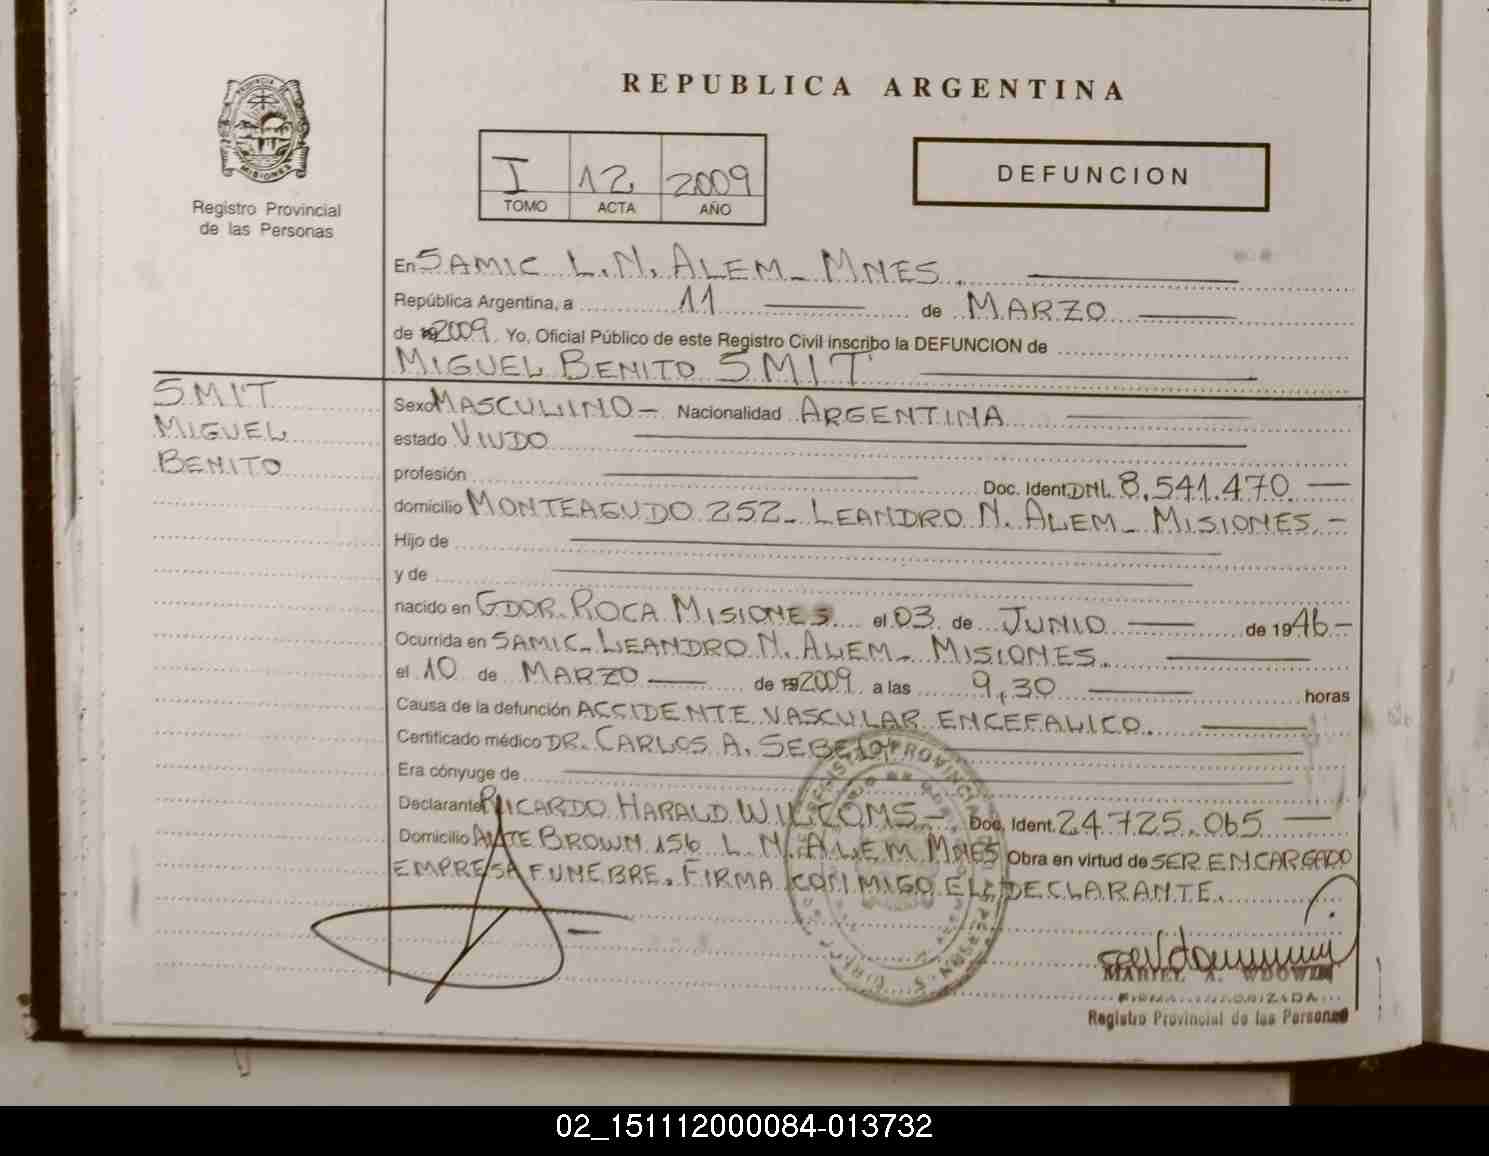 REPUBLICA ARGENTINA
PROVINCIA DE
MISIONES
Registro Provincial
de las Personas
I 12 2009
TOMO ACTA AÑO
DEFUNCION
En SAMIC L.N. ALEM - MNES.
República Argentina, a 11 de MARZO
de 2009. Yo, Oficial Público de este Registro Civil inscribo la DEFUNCION de
MIGUEL BENITO SMIT
SMIT
MIGUEL
BENITO
Sexo MASCULINO - Nacionalidad ARGENTINA
estado VIUDO
profesión Doc. Ident. DNI. 8.541.470
domicilio MONTEAGUDO 252 - LEANDRO N. ALEM - MISIONES. -
Hijo de
y de
nacido en GDOR. ROCA MISIONES el 03 de JUNIO de 1946 -
Ocurrida en SAMIC - LEANDRO N. ALEM - MISIONES.
el 10 de MARZO de 2009 a las 9,30 horas
Causa de la defunción ACCIDENTE VASCULAR ENCEFALICO.
Certificado médico DR. CARLOS A.
Era cónyuge de
Declarante RICARDO HARALD - Doc. Ident. 24.725.065
Domicilio ALTE BROWN 156 L. N. ALEM MNES Obra en virtud de SER ENCARGADO
EMPRESA FUNEBRE. FIRMA CONMIGO EL DECLARANTE.
MARIEL A. WDOWIN
FIRMA AUTORIZADA
Registro Provincial de las Personas
02_151112000084-013732